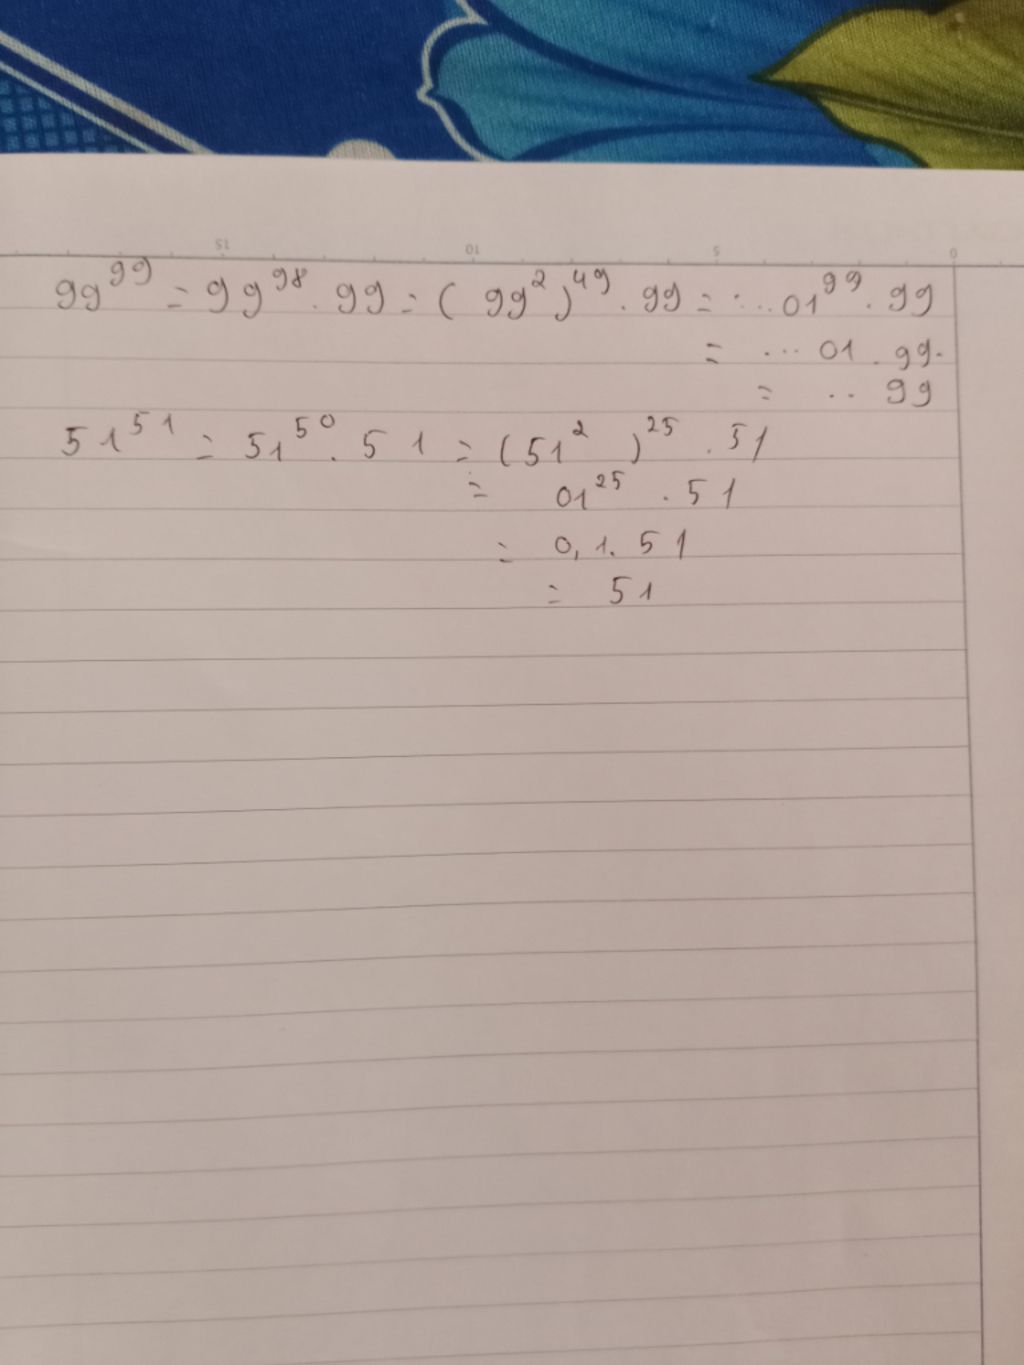 15 10 5 0
99^99 = 99^98 . 99 = (99^2)^49 . 99 = ...01^99 . 99
= ... 01 . 99.
= .. 99
51^51 = 51^50 . 51 = (51^2)^25 . 51
= 01^25 . 51
= 0,1. 51
= 51